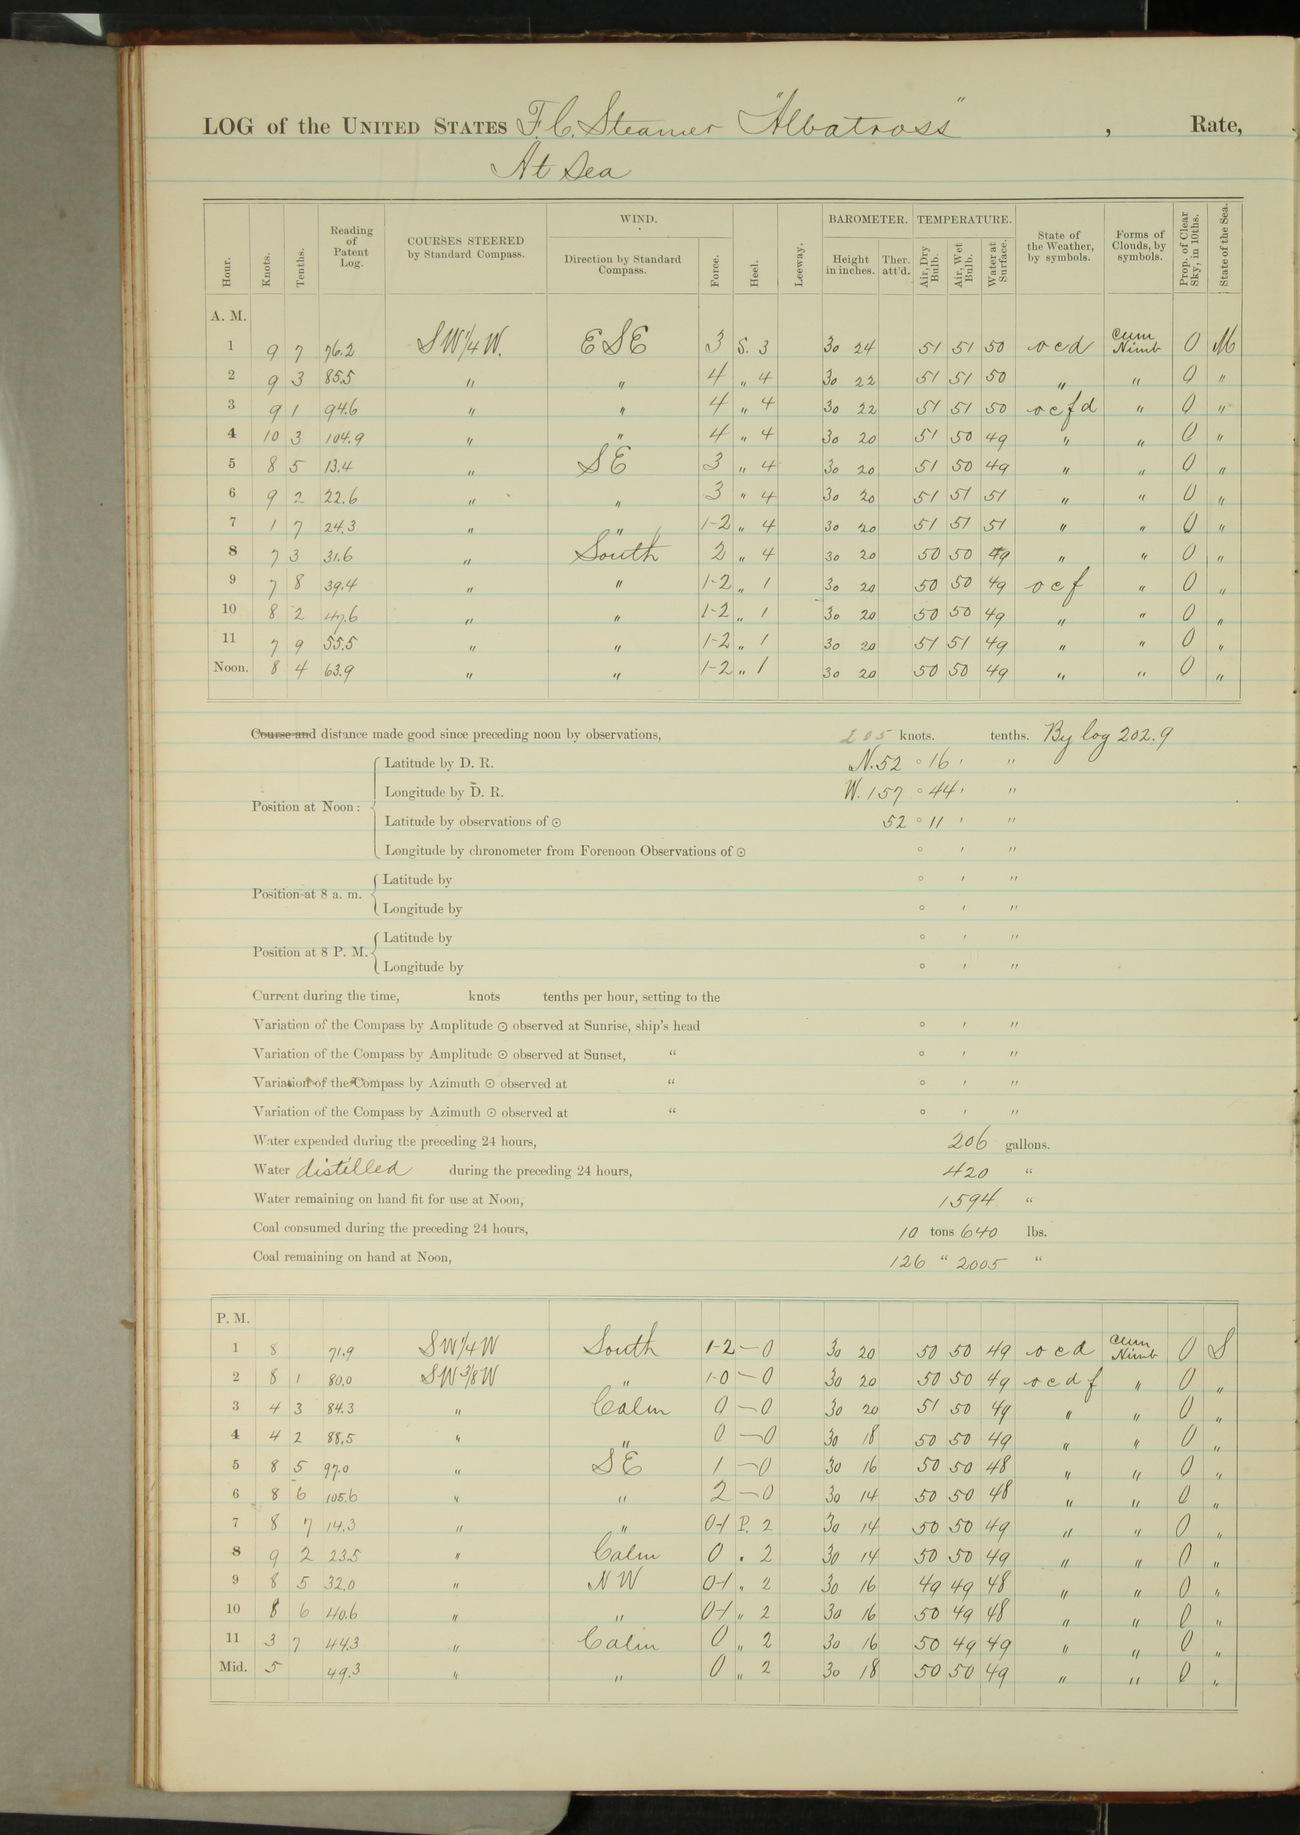 LOG of the UNITED STATES F.C. Steamer "Albatross" , Rate,
At Sea
Hour. Knots. Tenths. Reading of Patent Log. COURSES STEERED by Standard Compass. WIND. Direction by Standard Compass. Force. Heel. Leeway. BAROMETER. Height in inches. Ther. att'd. TEMPERATURE. Air, Dry Bulb. Air, Wet Bulb. Water at Surface. State of the Weather, by symbols. Forms of Clouds, by symbols. Prop. of Clear Sky, in 10ths. State of the Sea.
A. M.
1 9 7 76.2 SW 1/4 W. ESE 3 S. 3 30 24 51 51 50 o c d Cum Nimb 0 M
2 9 3 85.5 " " 4 " 4 30 22 51 51 50 " " 0 "
3 9 1 94.6 " " 4 " 4 30 22 51 51 50 o c f d " 0 "
4 10 3 104.9 " " 4 " 4 30 20 51 50 49 " " 0 "
5 8 5 13.4 " SE 3 " 4 30 20 51 50 49 " " 0 "
6 9 2 22.6 " " 3 " 4 30 20 51 51 51 " " 0 "
7 1 7 24.3 " " 1-2 " 4 30 20 51 51 51 " " 0 "
8 7 3 31.6 " South 2 " 4 30 20 50 50 49 " " 0 "
9 7 8 39.4 " " 1-2 " 1 30 20 50 50 49 o c f " 0 "
10 8 2 47.6 " " 1-2 " 1 30 20 50 50 49 " " 0 "
11 7 9 55.5 " " 1-2 " 1 30 20 51 51 49 " " 0 "
Noon. 8 4 63.9 " " 1-2 " 1 30 20 50 50 49 " " 0 "
Course and distance made good since preceding noon by observations, 205 knots. tenths. By log 202.9
Position at Noon:
Latitude by D. R. N. 52 ° 16 ' "
Longitude by D. R. W. 157 ° 44 ' "
Latitude by observations of ⊙ 52 ° 11 ' "
Longitude by chronometer from Forenoon Observations of ⊙ ° ' "
Position at 8 a. m.
Latitude by ° ' "
Longitude by ° ' "
Position at 8 P. M.
Latitude by ° ' "
Longitude by ° ' "
Current during the time, knots tenths per hour, setting to the
Variation of the Compass by Amplitude ⊙ observed at Sunrise, ship's head ° ' "
Variation of the Compass by Amplitude ⊙ observed at Sunset, " ° ' "
Variation of the Compass by Azimuth ⊙ observed at " ° ' "
Variation of the Compass by Azimuth ⊙ observed at " ° ' "
Water expended during the preceding 24 hours, 206 gallons.
Water distilled during the preceding 24 hours, 420 "
Water remaining on hand fit for use at Noon, 1594 "
Coal consumed during the preceding 24 hours, 10 tons 640 lbs.
Coal remaining on hand at Noon, 126 " 2005 "
P. M.
1 8 71.9 SW 1/4 W South 1-2 — 0 30 20 50 50 49 o c d Cum Nimb 0 S
2 8 1 80.0 SW 3/8 W " 1-0 — 0 30 20 50 50 49 o c d f " 0 "
3 4 3 84.3 " Calm 0 — 0 30 20 51 50 49 " " 0 "
4 4 2 88.5 " " 0 — 0 30 18 50 50 49 " " 0 "
5 8 5 97.0 " SE 1 — 0 30 16 50 50 48 " " 0 "
6 8 6 105.6 " " 2 — 0 30 14 50 50 48 " " 0 "
7 8 7 14.3 " " 0-1 P. 2 30 14 50 50 49 " " 0 "
8 9 2 23.5 " Calm 0 " 2 30 14 50 50 49 " " 0 "
9 8 5 32.0 " NW 0-1 " 2 30 16 49 49 48 " " 0 "
10 8 6 40.6 " " 0-1 " 2 30 16 50 49 48 " " 0 "
11 3 7 44.3 " Calm 0 " 2 30 16 50 49 49 " " 0 "
Mid. 5 49.3 " " 0 " 2 30 18 50 50 49 " " 0 "